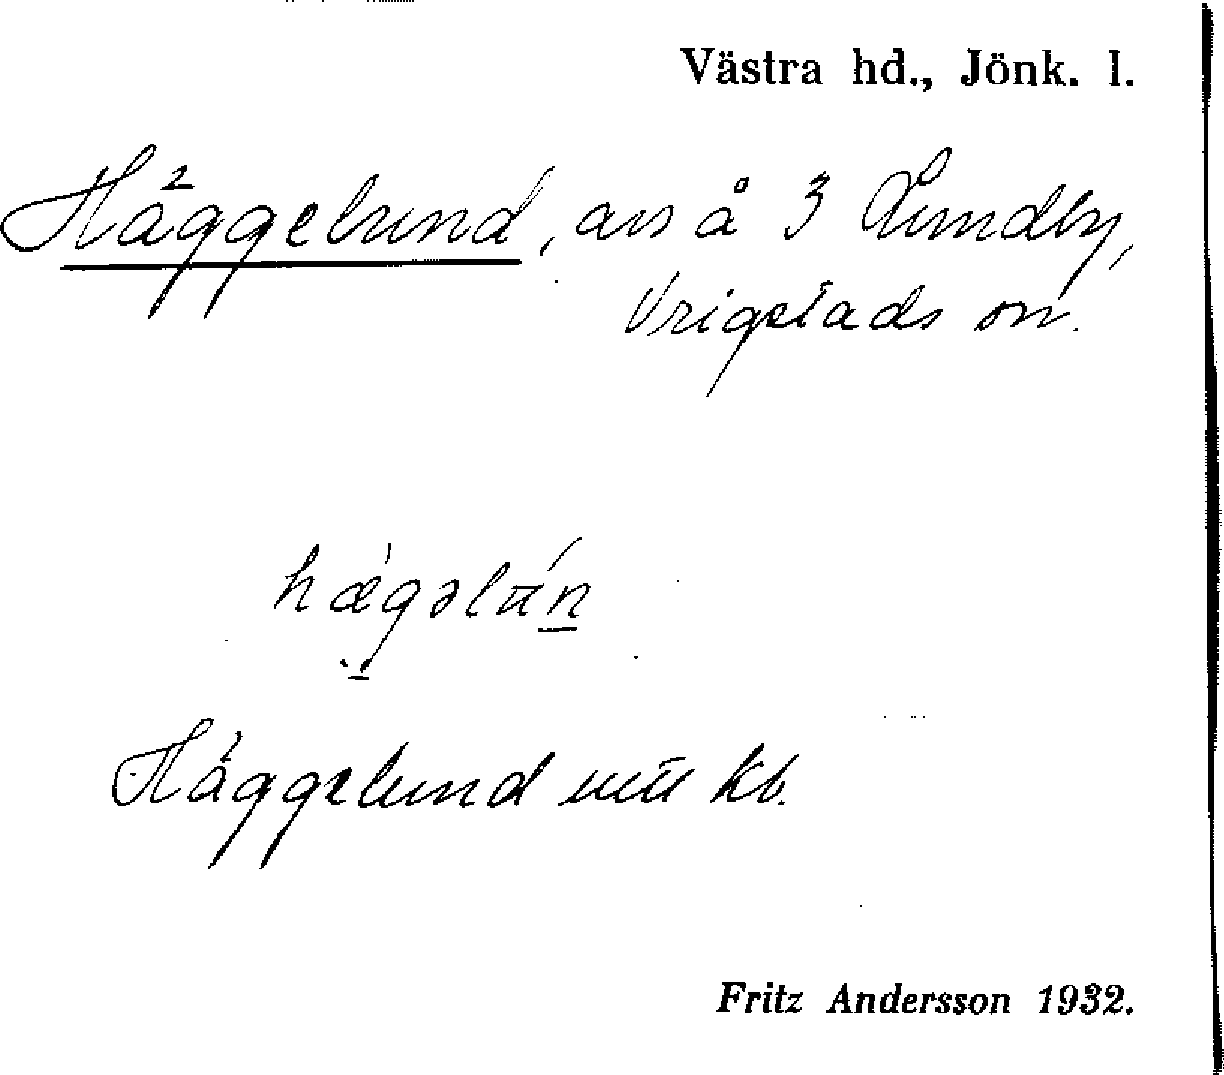 Västra hd., Jönk. l.
Häggelund, avs å 3 Lundby,
Vrigstads sn.
Häggelund kb.
Fritz Andersson 1932.